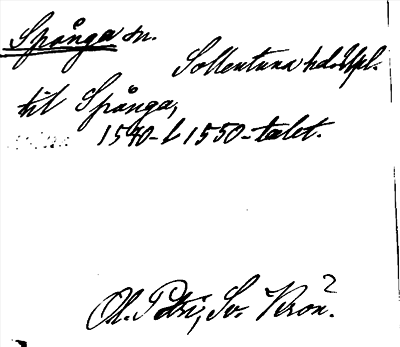 Spånga sn.
Sollentuna hd. Upl.
til Spånga,
1540-t 1550-talet.
Ol. Petri, Sv. Krön.